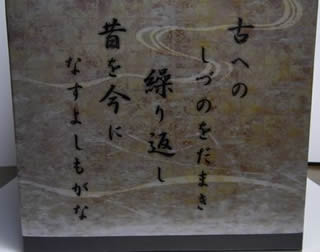 古への
しづのをだまき
繰り返し
昔を今に
なすよしもがな